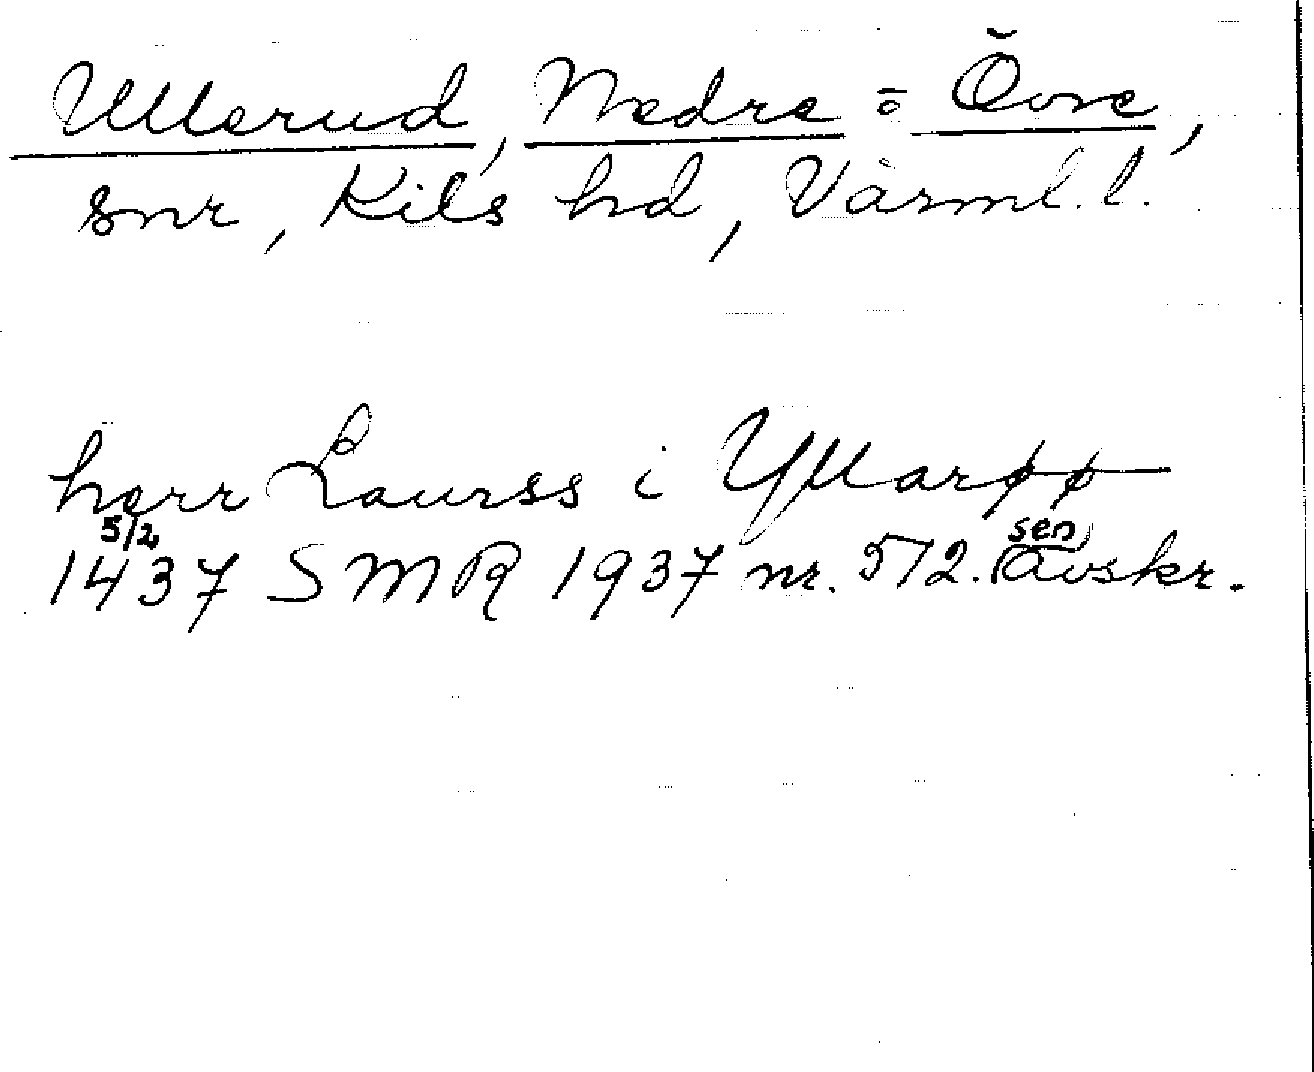 Ullerud, Nedre o Övre,
snr, Kils hd, Värml. l.
herr Laurss i Yllarøø
1437 5/2 SMR 1937 nr. 572. (sen) avskr.